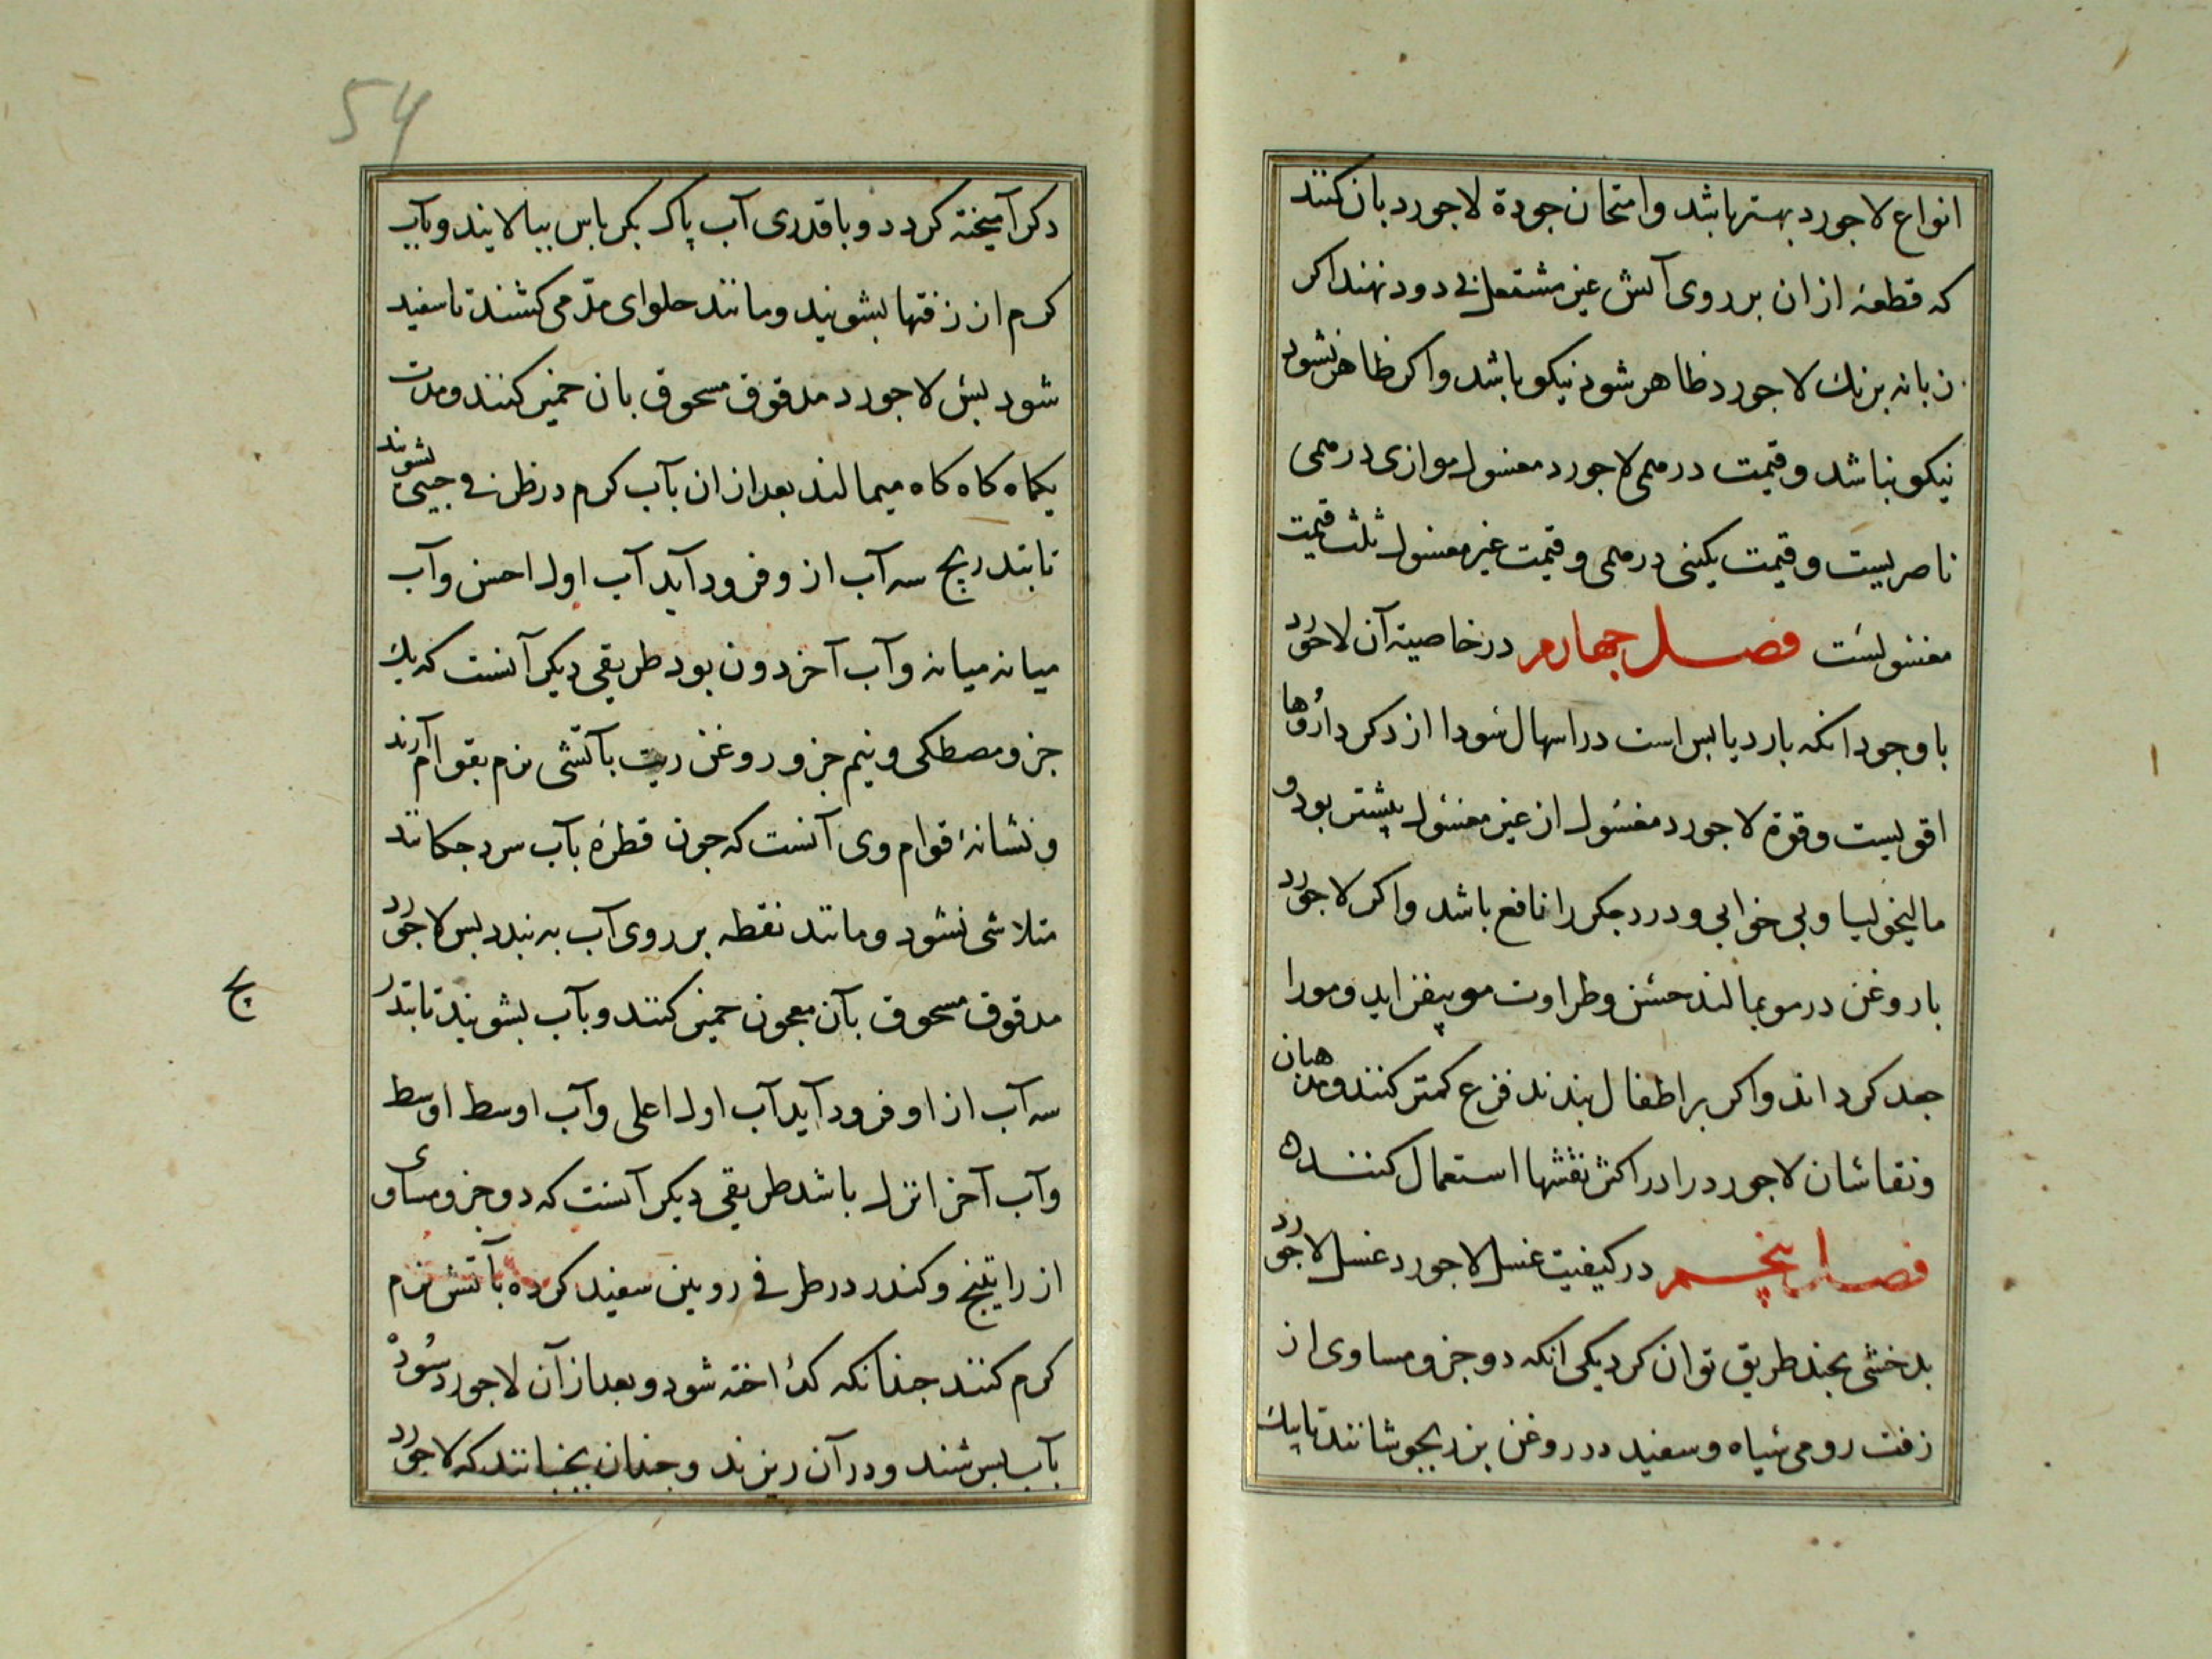 انواع لاجورد بهتر باشد و امتحان جودة لاجورد بان كنند
كه قطعهٔ ازان بر روى آتش غير مشتعل بى دود نهند اكر
زبانه برنك لاجورد ظاهر شود نيكو باشد واكر ظاهر نشود
نيكو نباشد و قيمت درمى لاجورد مغسول موازى درمى
ناصريست و قيمت يكنى درمى و قيمت غير مغسول ثلث قيمت
مغسولست فصل چهارم در خاصية آن لاجورد
با وجود انكه بارد يابس است در اسهال سودا از دكر داروها
اقويست و قوة لاجورد مغسول از غير مغسول بيشتر بود و
ماليخوليا و بى خوابى و درد جكر را نافع باشد واكر لاجورد
با روغن در مو بمالند حسن و طراوت مو بيفزايد و مو را
جعد كرداند واكر بر اطفال بندند فزع كمتر كنند و مذهبان
و نقاشان لاجورد را در اكثر نقشها استعمال كنند ه
فصل پنجم در كيفيت غسل لاجورد غسل لاجورد
بدخشى بچند طريق توان كرد يكى انكه دو جزو مساوى از
زفت رومى سياه و سفيد در روغن بزر بجوشانند تا بيك
54
دكر آميخته كردد و با قدرى آب پاك بكرباس بپالايند و بآب
كرم از زفتها بشويند و مانند حلواى مدّ مى كشند تا سفيد
شود بس لاجورد مدقوق مسحوق بان خمير كنند و مدت
يكماه كاه كاه ميمالند بعد ازان بآب كرم در ظرفى چينى بشويند
تا بتدريج سه آب ازو فرود آيد آب اول احسن و آب
ميانه ميانه و آب آخر دون بود طريقى ديكر آنست كه يك
جزو مصطكى و نيم جزو روغن زيت بآتشى نرم بقوام آرند
و نشانهٔ قوام وى آنست كه چون قطرهٔ بآب سرد چكانند
متلاشى نشود و مانند نقطه بر روى آب به بندد بس لاجورد
مدقوق مسحوق بآن معجون خمير كنند و بآب بشويند تا بتدر
يج
سه آب از او فرود آيد آب اول اعلى و آب اوسط اوسط
و آب آخر انزل باشد طريقى ديكر آنست كه دو جزو مساوى
از راتينج و كندر در ظرفى رويين سفيد كرده بآتش نرم
كرم كنند چندانكه كداخته شود و بعد از آن لاجورد سوده
بآب بسرشند و در آن ريزند و چندان بجنبانند كه لاجورد